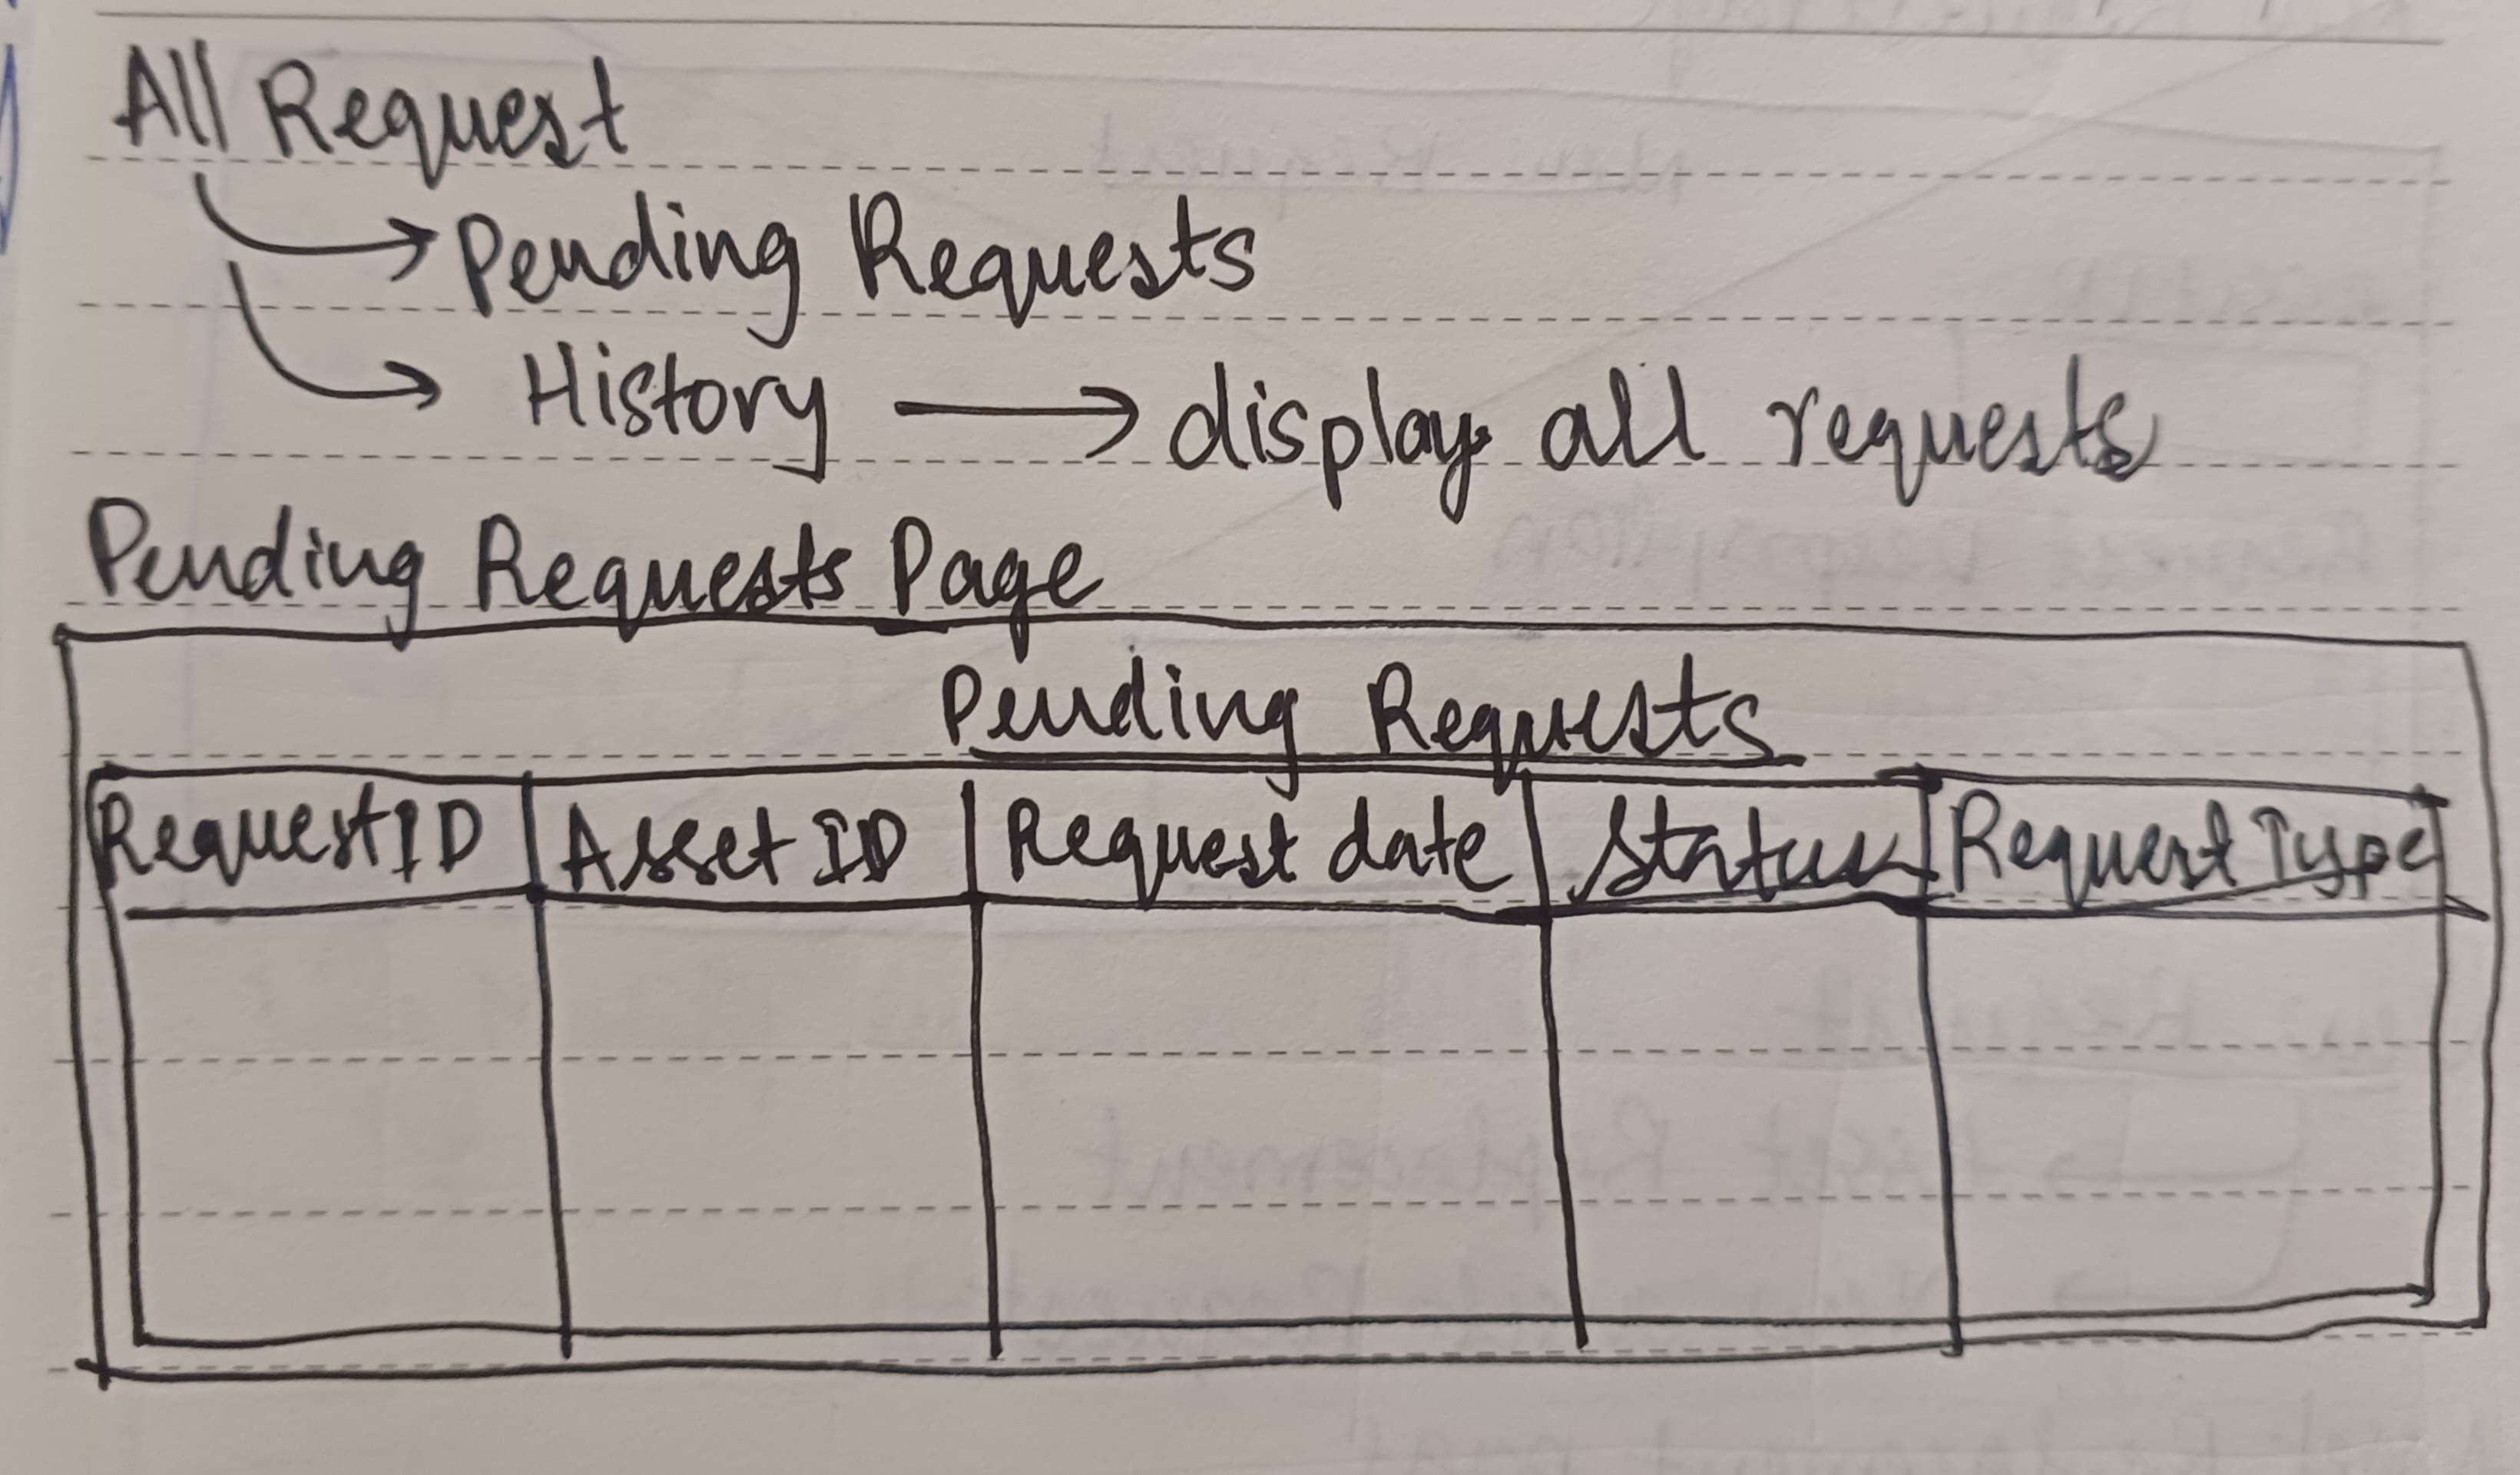 All Request
→ Pending Requests
→ History → display all requests
Pending Requests Page
Pending Requests
Request ID | Asset ID | Request date | Status | Request Type